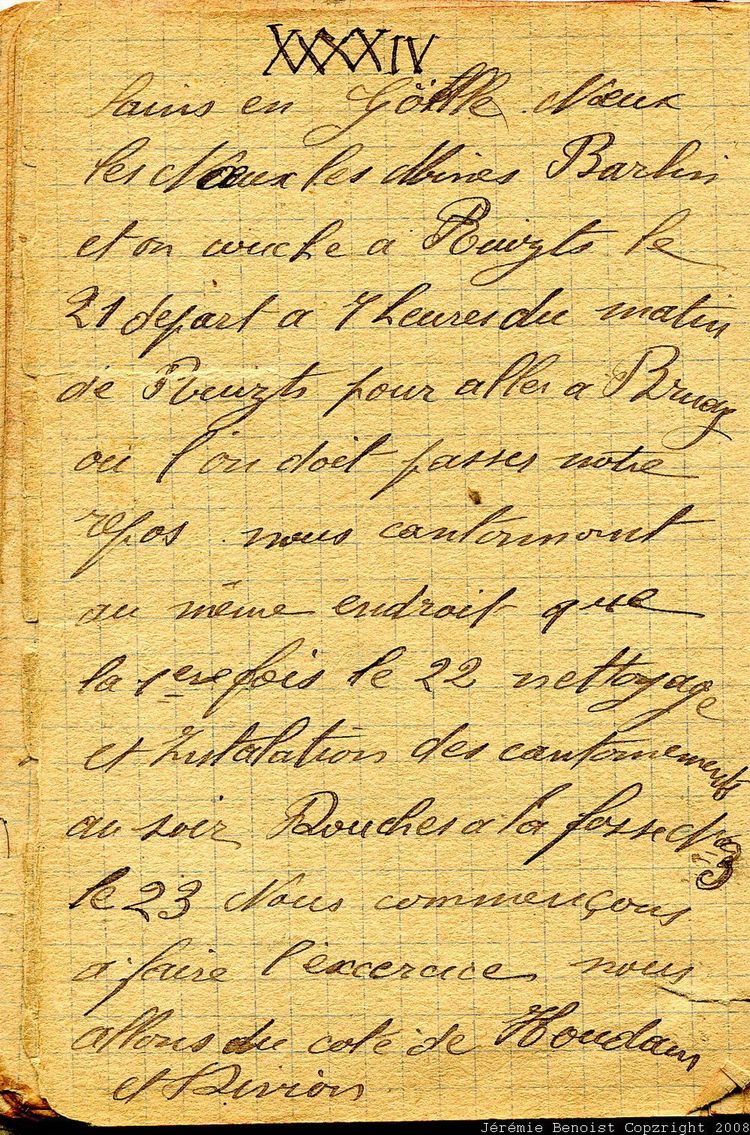 XXXXIV
Sains en Göhlle. Nœux
les Nœux les Mines Barlin
et on couche a Ruizts le
21 depart a 7 heures du matin
de Ruizts pour aller a Bruay
ou l'on doit passer notre
repos. nous cantonnont
au même endroit que
la 1ere fois le 22 nettoyage
et Instalation des cantonnements
au soir Douches a la fosse No 3
le 23 Nous commençons
a faire l'excercice nous
allons du coté de Houdain
et Divion
Jérémie Benoist Copzright 2008